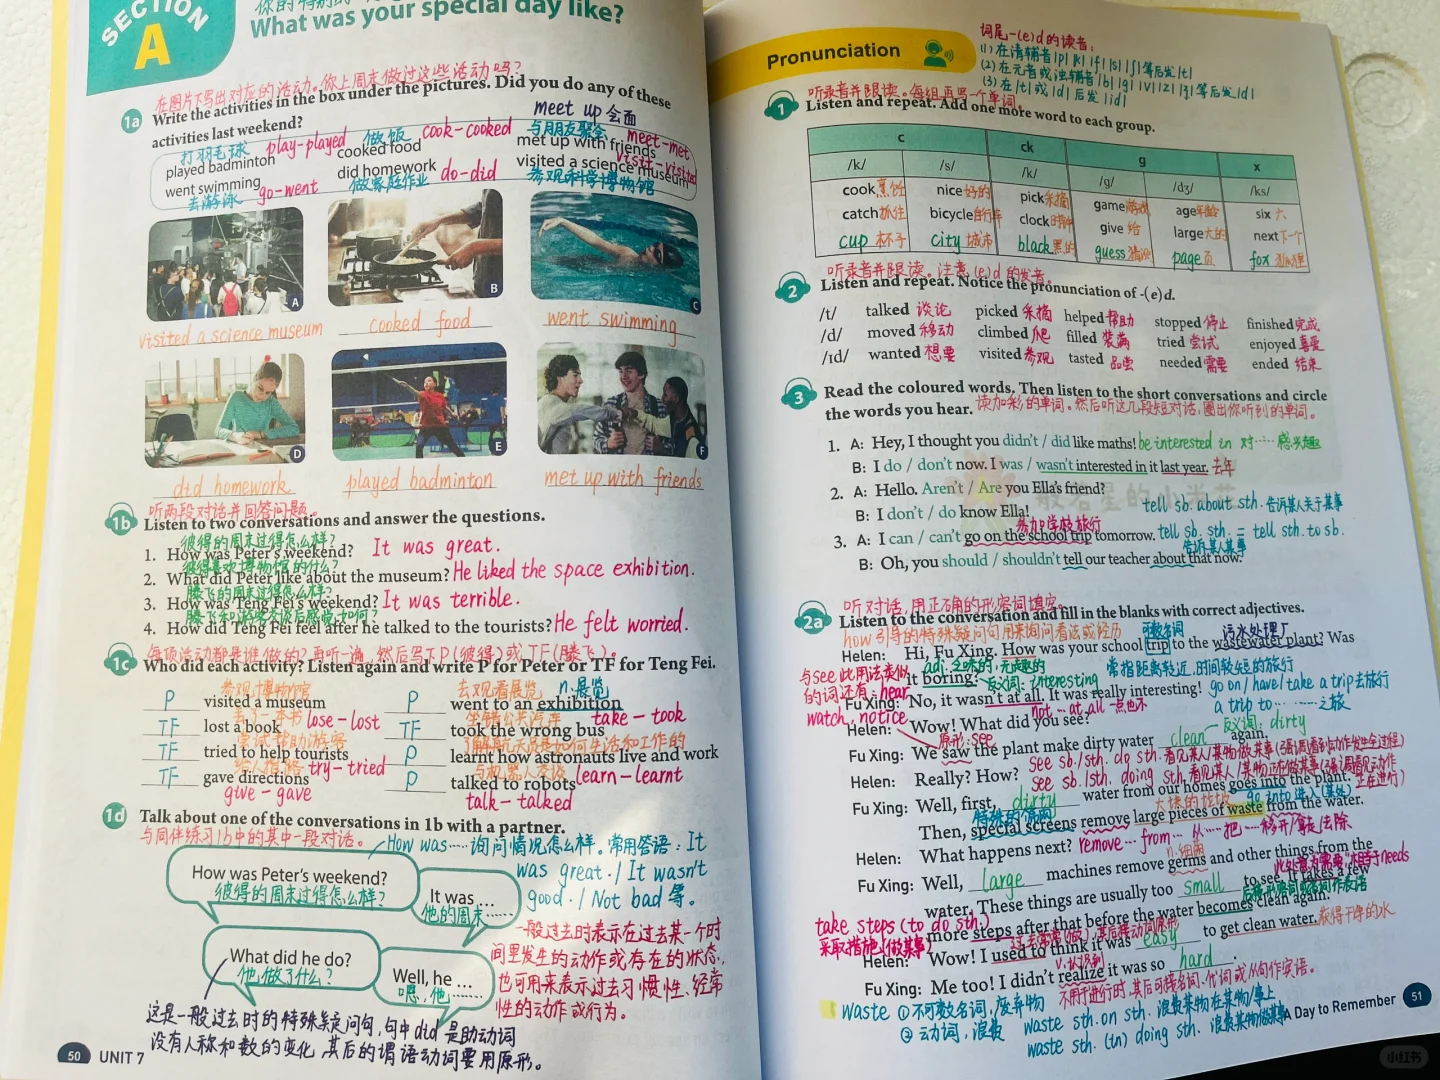 SECTION A
What was your special day like?
在图片下写出对应的活动。你上周末做过这些活动吗?
1a Write the activities in the box under the pictures. Did you do any of these
activities last weekend?
meet up 会面
打羽毛球 play-played 做饭 cook-cooked 与朋友聚会 meet-met
played badminton cooked food met up with friends
went swimming did homework visited a science museum
去游泳 go-went 做家庭作业 do-did 参观科学博物馆 visit-visited
A B C
visited a science museum cooked food went swimming
D E F
did homework played badminton met up with friends
听两段对话并回答问题。
1b Listen to two conversations and answer the questions.
彼得的周末过得怎么样?
1. How was Peter's weekend? It was great.
彼得喜欢博物馆的什么?
2. What did Peter like about the museum? He liked the space exhibition.
腾飞的周末过得怎么样?
3. How was Teng Fei's weekend? It was terrible.
4. How did Teng Fei feel after he talked to the tourists? He felt worried.
每项活动都是谁做的?再听一遍,然后写下P(彼得)或TF(腾飞)。
1c Who did each activity? Listen again and write P for Peter or TF for Teng Fei.
参观博物馆 去观看展览 n.展览
P visited a museum P went to an exhibition
lose-lost take-took
TF lost a book TF took the wrong bus
TF tried to help tourists P learnt how astronauts live and work
try-tried learn-learnt
TF gave directions P talked to robots
give-gave talk-talked
1d Talk about one of the conversations in 1b with a partner.
与同伴练习1b中的其中一段对话。
How was……询问情况怎么样。常用答语:It
was great./It wasn't
good./Not bad等。
How was Peter's weekend?
彼得的周末过得怎么样?
It was ...
他的周末……
What did he do?
他做了什么?
Well, he ...
嗯,他……
一般过去时表示在过去某一个时
间里发生的动作或存在的状态,
也可用来表示过去习惯性、经常
性的动作或行为。
这是一般过去时的特殊疑问句,句中did是助动词
没有人称和数的变化,其后的谓语动词要用原形。
50 UNIT 7
Pronunciation
词尾-(e)d的读音:
(1)在清辅音|p| |k| |f| |s| |ʃ|等后发|t|
(2)在元音或浊辅音|b| |g| |v| |z| |ʒ|等后发|d|
(3)在|t|或|d|后发|id|
听录音并跟读。每组再写一个单词。
1 Listen and repeat. Add one more word to each group.
c ck g x
/k/ /s/ /k/ /g/ /dʒ/ /ks/
cook烹饪 nice好的 pick采摘 game游戏 age年龄 six六
catch抓住 bicycle自行车 clock时钟 give给 large大的 next下一个
cup杯子 city城市 black黑的 guess猜测 page页 fox狐狸
听录音并跟读。注意-(e)d的发音。
2 Listen and repeat. Notice the pronunciation of -(e)d.
/t/ talked谈论 picked采摘 helped帮助 stopped停止 finished完成
/d/ moved移动 climbed爬 filled装满 tried尝试 enjoyed喜爱
/ɪd/ wanted想要 visited参观 tasted品尝 needed需要 ended结束
3 Read the coloured words. Then listen to the short conversations and circle
the words you hear. 读加彩的单词。然后听这几段短对话,圈出你听到的单词。
1. A: Hey, I thought you didn't / did like maths! be interested in 对……感兴趣
B: I do / don't now. I was / wasn't interested in it last year. 去年
2. A: Hello. Aren't / Are you Ella's friend?
B: I don't / do know Ella! tell sb. about sth. 告诉某人关于某事
参加学校旅行
3. A: I can / can't go on the school trip tomorrow. tell sb. sth. = tell sth. to sb.
告诉某人某事
B: Oh, you should / shouldn't tell our teacher about that now.
听对话,用正确的形容词填空。
2a Listen to the conversation and fill in the blanks with correct adjectives.
how引导的特殊疑问句用来询问看法或经历 可数名词 污水处理厂
Helen: Hi, Fu Xing. How was your school trip to the wastewater plant? Was
adj.乏味的,无趣的 常指距离较近,时间较短的旅行
it boring? 反义词:interesting
与see此用法类似
的词还有:hear,
watch, notice
Fu Xing: No, it wasn't at all. It was really interesting! go on/have/take a trip去旅行
not…at all一点也不 a trip to……之旅
Helen: Wow! What did you see? 反义词:dirty
原形:see
Fu Xing: We saw the plant make dirty water clean again.
see sb./sth. do sth.看见某人/某物做某事(强调看到动作发生全过程)
Helen: Really? How? see sb./sth. doing sth.看见某人/某物正在做某事(强调看见动作正在进行)
Fu Xing: Well, first, dirty water from our homes goes into the plant.
go into进入(某处)
Then, special screens remove large pieces of waste from the water.
Helen: What happens next? remove…from…从……把……移开/拿走/去除
n.细菌
Fu Xing: Well, large machines remove germs and other things from the
water. These things are usually too small to see. It takes a few
more steps after that before the water becomes clean again.
take steps (to do sth.)
采取措施(做某事)
Helen: Wow! I used to think it was easy to get clean water. 获得干净的水
Fu Xing: Me too! I didn't realize it was so hard.
不用于进行时,其后可接名词、代词或从句作宾语。
waste ①不可数名词,废弃物 waste sth. on sth. 浪费某物在某物/事上
②动词,浪费 waste sth. (in) doing sth. 浪费某物做某事
A Day to Remember 51
小红书